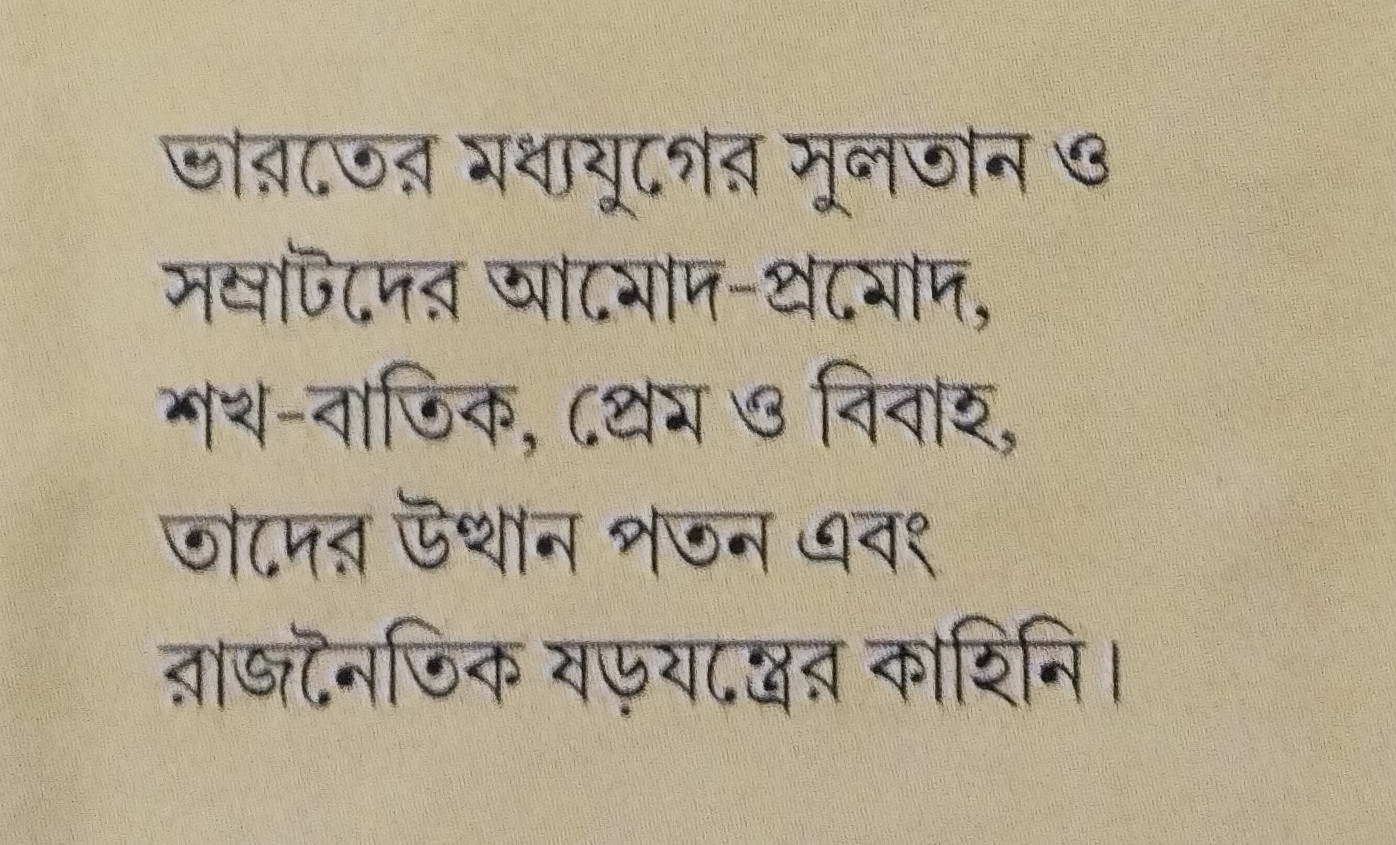 ভারতের মধ্যযুগের সুলতান ও
সম্রাটদের আমোদ-প্রমোদ,
শখ-বাতিক, প্রেম ও বিবাহ,
তাদের উত্থান পতন এবং
রাজনৈতিক ষড়যন্ত্রের কাহিনি।